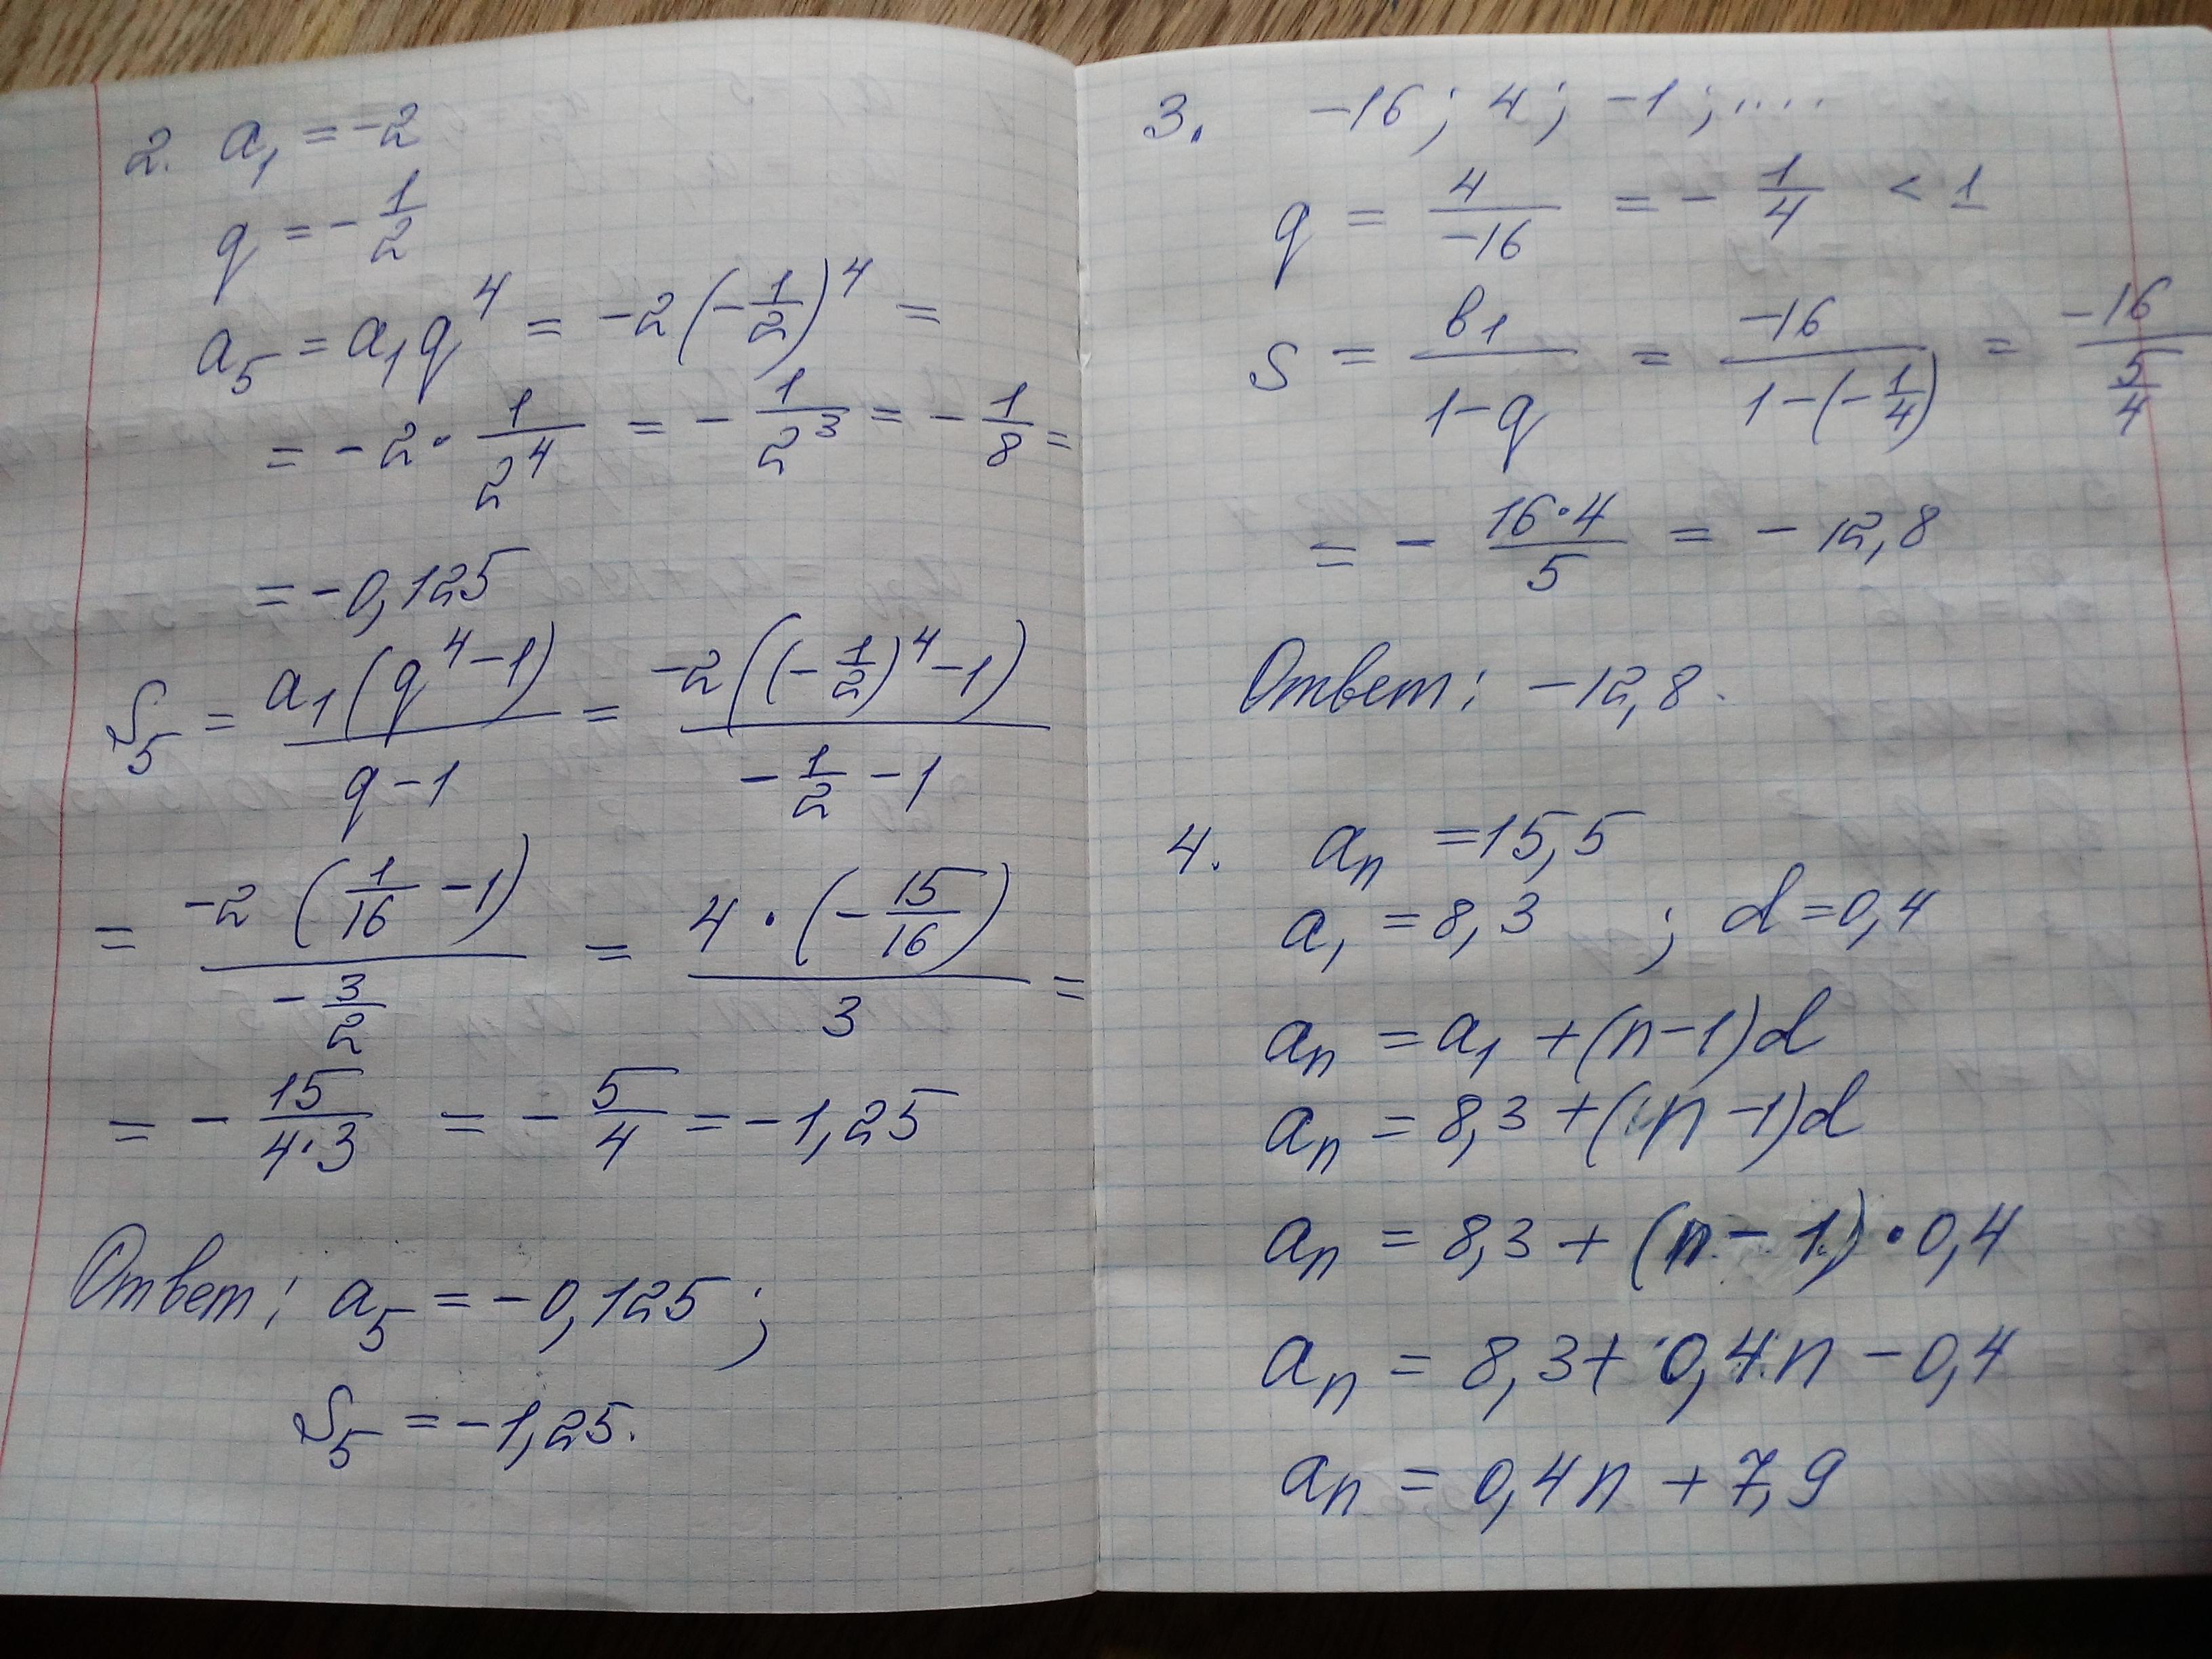 2. a₁ = -2
q = - 1/2
a₅ = a₁q⁴ = -2(-1/2)⁴ =
= -2 · 1/2⁴ = - 1/2³ = - 1/8 =
= -0,125
S₅ = a₁(q⁴-1)/(q-1) = -2((-1/2)⁴-1)/(-1/2 -1)
= -2(1/16 -1)/(-3/2) = 4·(-15/16)/3 =
= - 15/(4·3) = - 5/4 = -1,25
Ответ: a₅ = -0,125;
S₅ = -1,25.
3. -16; 4; -1; ....
q = 4/-16 = - 1/4 < 1
S = b₁/(1-q) = -16/(1-(-1/4)) = -16/(5/4)
= - 16·4/5 = - 12,8
Ответ: -12,8.
4. aₙ = 15,5
a₁ = 8,3 ; d = 0,4
aₙ = a₁ + (n-1)d
aₙ = 8,3 + (n-1)d
aₙ = 8,3 + (n-1)·0,4
aₙ = 8,3 + 0,4n - 0,4
aₙ = 0,4n + 7,9